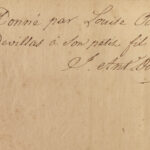 Donné par Louise
Devillas à son petit fil
J. And